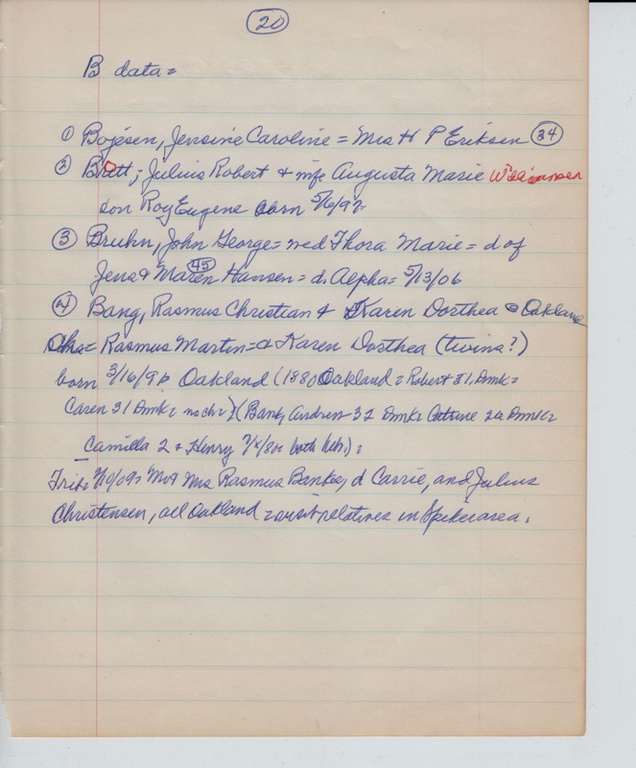 20
B data =
① Bojesen, Jensine Caroline = Mrs H P Eriksen 34
② Brott; Julius Robert & wife Augusta Marie
son Roy Eugene born 5/6/92
③ Bruhn, John George = wed Thora Marie = d of
Jens & Maren 45 Hansen = d. Alpha = 5/13/06
④ Bang, Rasmus Christian & Karen Dorthea = Oakland
Rasmus Martin = & Karen Dorthea (twins?)
born 3/16/9 Oakland (1880 Oakland = Robert 31, Dmk =
Caren 31 Dmk = no chr) (Bank, Andrew 32 Dmk = 26 Dmk =
Camilla 2 & Henry both Neb.) =
Trib = 9/10/09 = Mr & Mrs Rasmus Banks, d Carrie, and Julius
Christensen, all Oakland = visit relatives in Spiker area.